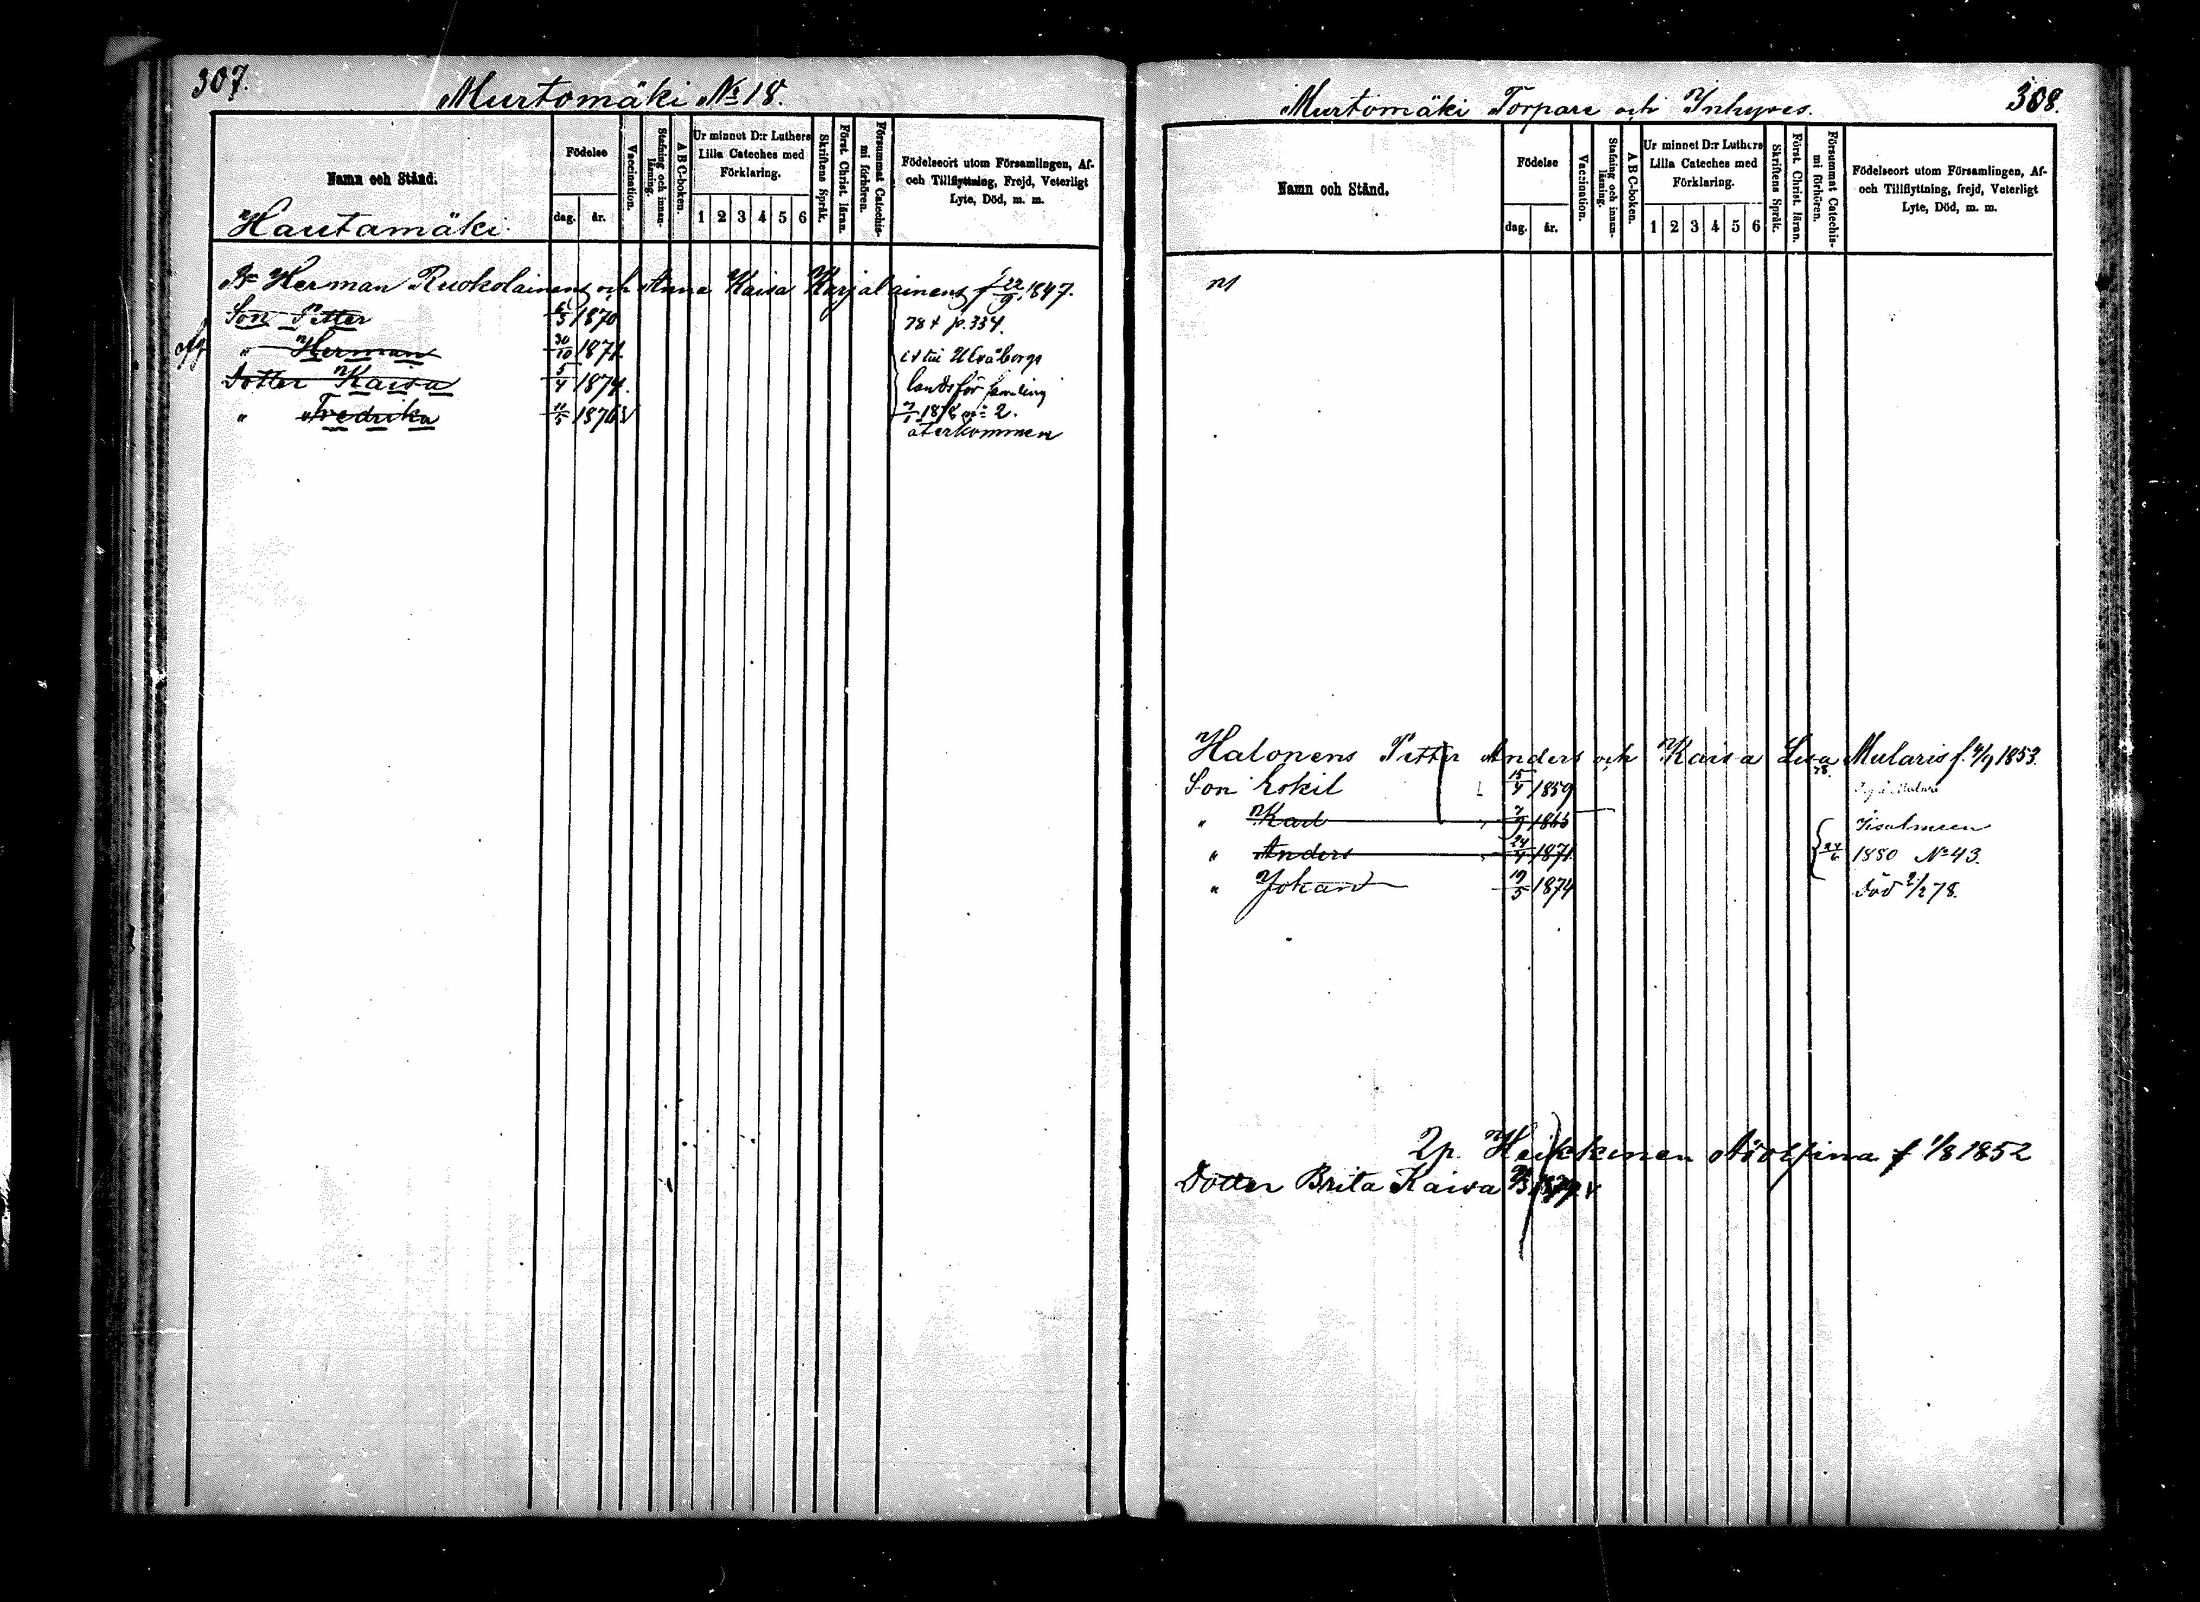 307.
Murtomäki № 18.
Namn och Stånd.
Födelse
dag. år.
Vaccination.
Stafning och innanläsning.
ABC-boken.
Ur minnet D:r Luthers Lilla Cateches med Förklaring.
1 2 3 4 5 6
Skriftens Språk.
Först. Christ. läran.
Försummat Catechismi förhören.
Födelseort utom Församlingen, Af- och Tillflyttning, Frejd, Veterligt Lyte, Död, m. m.
Hautamäki.
Herman Ruokolainens och Anna Kaisa Karjalainens f 22/9 1847.
Son Petter 1870 78 + p. 334.
" Herman 30/10 1871 Uleåborgs
Dotter Kaisa 5/4 1874. landsförsamling
" Fredrika 11/5 1876 v 1878 № 2.
återkommen
308.
Murtomäki Torpare och Inhyses.
Namn och Stånd.
Födelse
dag. år.
Vaccination.
Stafning och innanläsning.
ABC-boken.
Ur minnet D:r Luthers Lilla Cateches med Förklaring.
1 2 3 4 5 6
Skriftens Språk.
Först. Christ. läran.
Försummat Catechismi förhören.
Födelseort utom Församlingen, Af- och Tillflyttning, frejd, Veterligt Lyte, Död, m. m.
Halonens Petter Anders och Kaisa Lisa Mularis f. 4/9 1853.
Son Eskil 15/4 1859
" Karl 1865 Iisalmeen
" Anders 24/4 1871 24/6 1880 № 43.
" Johan 19/5 1874 död 2/2 78.
2p. Heikkinen Adolfina f 1/8 1852
Dotter Brita Kaisa 1879 v